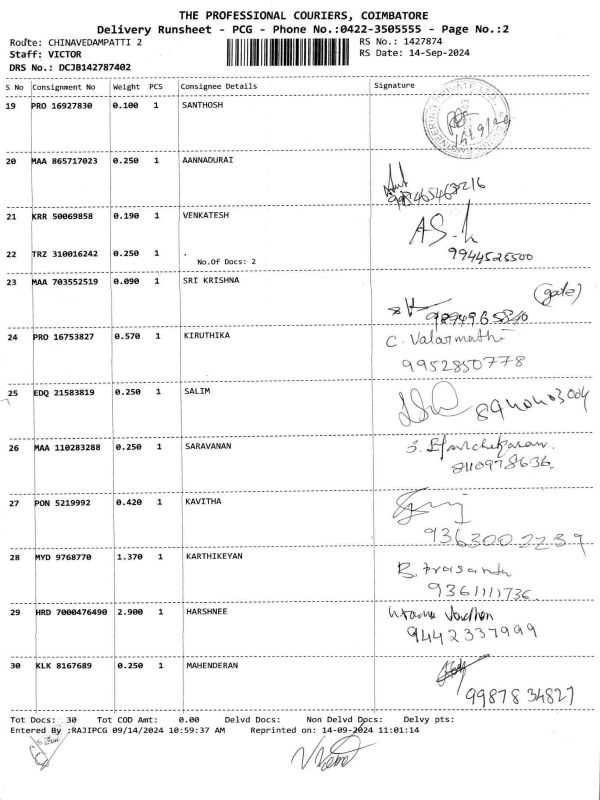 THE PROFESSIONAL COURIERS, COIMBATORE
Delivery Runsheet - PCG - Phone No.:0422-3505555 - Page No.:2
Route: CHINAVEDAMPATTI 2 RS No.: 1427874
Staff: VICTOR RS Date: 14-Sep-2024
DRS No.: DCJB142787402
S No Consignment No Weight PCS Consignee Details Signature
19 PRO 16927830 0.100 1 SANTHOSH
14/9/24
20 MAA 865717023 0.250 1 AANNADURAI
21 KRR 50069858 0.190 1 VENKATESH
22 TRZ 310016242 0.250 1 .
No.Of Docs: 2 9944525500
23 MAA 703552519 0.090 1 SRI KRISHNA
(gate)
9894965840
24 PRO 16753827 0.570 1 KIRUTHIKA C. Valarmathi
9952850778
25 EDQ 21583819 0.250 1 SALIM
26 MAA 110283288 0.250 1 SARAVANAN
8110978636
27 PON 5219992 0.420 1 KAVITHA
9363002239
28 MYD 9768770 1.370 1 KARTHIKEYAN B. Prasanth
9361111736
29 HRD 7000476490 2.900 1 HARSHNEE
9442337999
30 KLK 8167689 0.250 1 MAHENDERAN
9987834827
Tot Docs: 30 Tot COD Amt: 0.00 Delvd Docs: Non Delvd Docs: Delvy pts:
Entered By :RAJIPCG 09/14/2024 10:59:37 AM Reprinted on: 14-09-2024 11:01:14